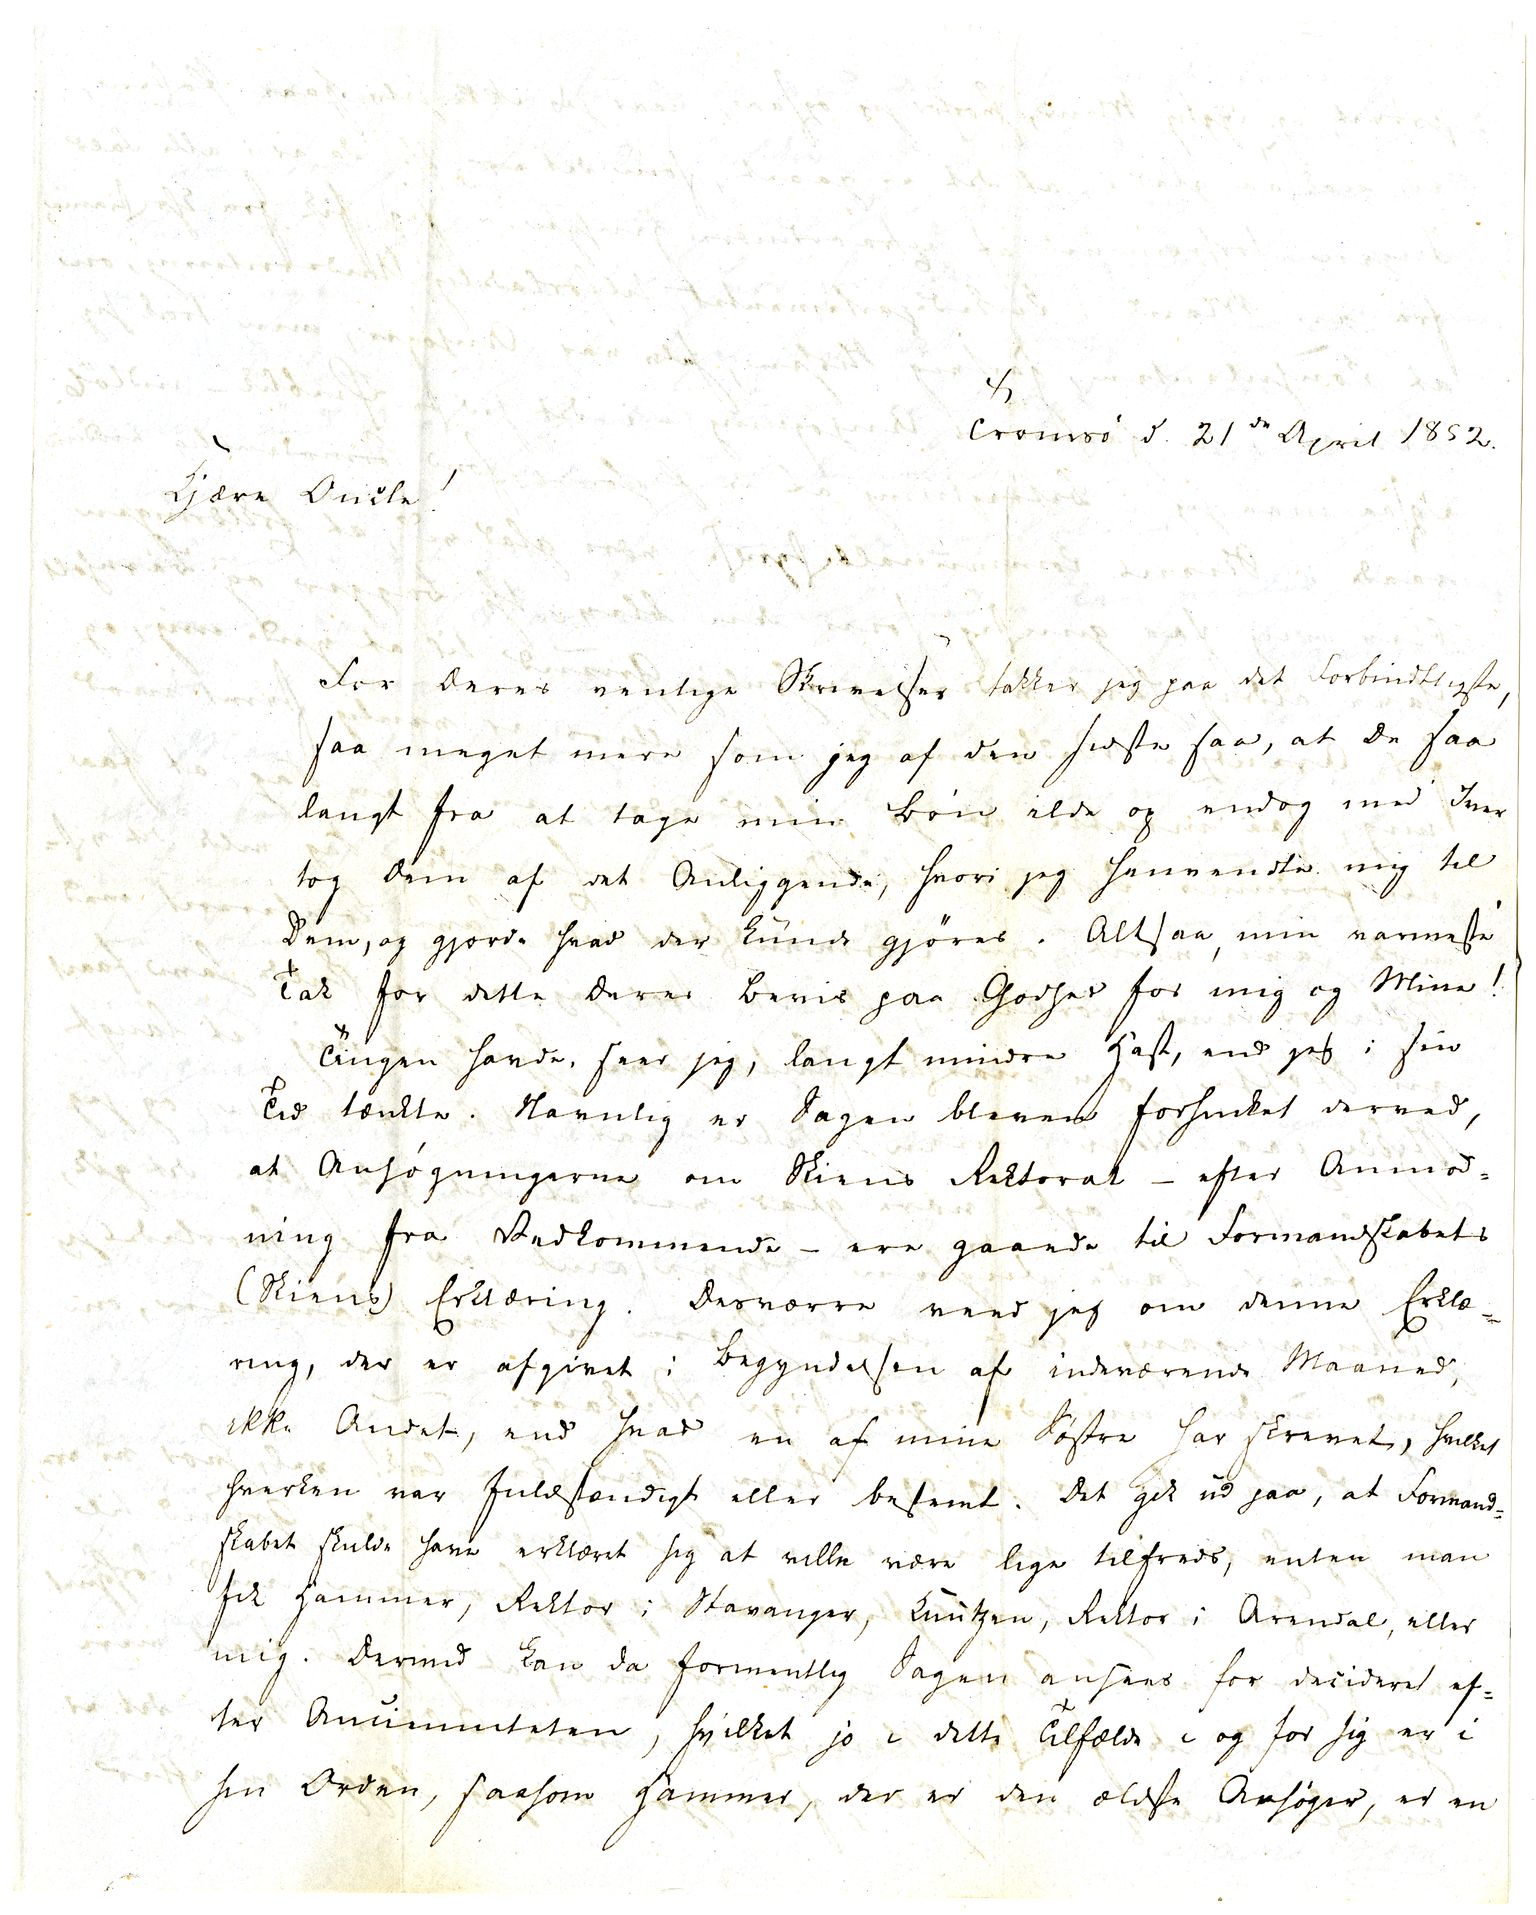 Tromsö d. 21de April 1852.
Kjære Oncle!
For Deres venlige Skrivelser takker jeg paa det Forbindtligste,
saa meget mere som jeg af den sidste saa, at De saa
langt fra at tage min Bön ilde op endog med Iver
tog Dem af det Anliggende, hvori jeg henvendte mig til
Dem, og gjorde hvad der kunde gjöres. Altsaa min varmeste
Tak for dette Deres Beviis paa Godhed for mig og Mine!
Tingen havde, seer jeg, langt mindre Hast, end jeg i sin
Tid tænkte. Navnlig er Sagen bleven forsinket derved,
at Ansögningerne om Skiens Rektorat – efter Anmod=
ning fra Vedkommende – ere gaaede til Formandskabets
(Skiens) Erklæring. Desværre veed jeg om denne Erklæ=
ring, der er afgivet i Begyndelsen af indeværende Maaned,
ikke Andet, end hvad en af mine Söstre har skrevet, hvilket
hverken var fuldstændigt eller bestemt. Det gik ud paa, at Formand=
skabet skulde have erklæret sig at ville være lige tilfreds, enten man
fik Hammer, Rektor i Stavanger, Knutzen, Rektor i Arendal, eller
mig. Dermed kan da formentlig Sagen ansees for decideret ef=
ter Ancienniteten, hvilket jo i dette Tilfælde i og for sig er i
sin Orden, saasom Hammer, der er den ældste Ansöger, er en